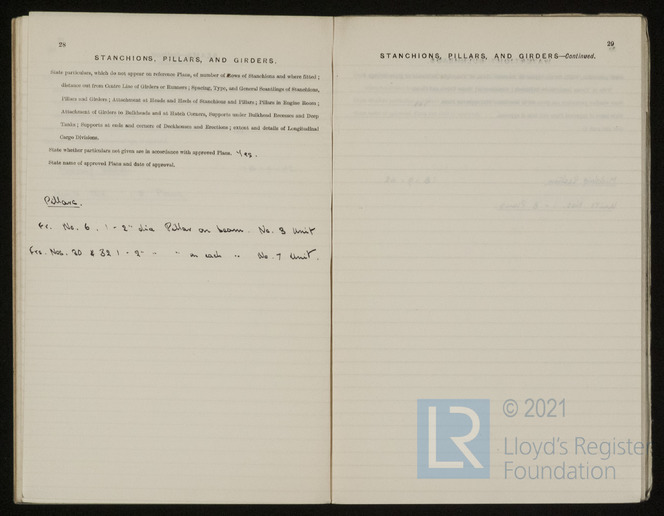 28
STANCHIONS, PILLARS, AND GIRDERS.
State particulars, which do not appear on reference Plans, of number of Rows of Stanchions and where fitted;
distance out from Centre Line of Girders or Runners; Spacing, Type, and General Scantlings of Stanchions,
Pillars and Girders; Attachment at Heads and Heels of Stanchions and Pillars; Pillars in Engine Room;
Attachment of Girders to Bulkheads and at Hatch Corners, Supports under Bulkhead Recesses and Deep
Tanks; Supports at ends and corners of Deckhouses and Erections; extent and details of Longitudinal
Cargo Divisions.
State whether particulars not given are in accordance with approved Plans. Yes.
State name of approved Plans and date of approval.
Pillars.
Fr. No. 6, 1 - 2" dia Pillar on beam. No. 8 Unit
Frs. Nos. 30 & 32 1 - 2" " " on each " No 7 Unit.
29
STANCHIONS, PILLARS, AND GIRDERS—Continued.
LR
© 2021
Lloyd's Register
Foundation